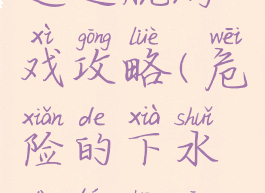 xì gōng lüè wēi
戏攻略(危
xiǎn de xià shuǐ
险的下水